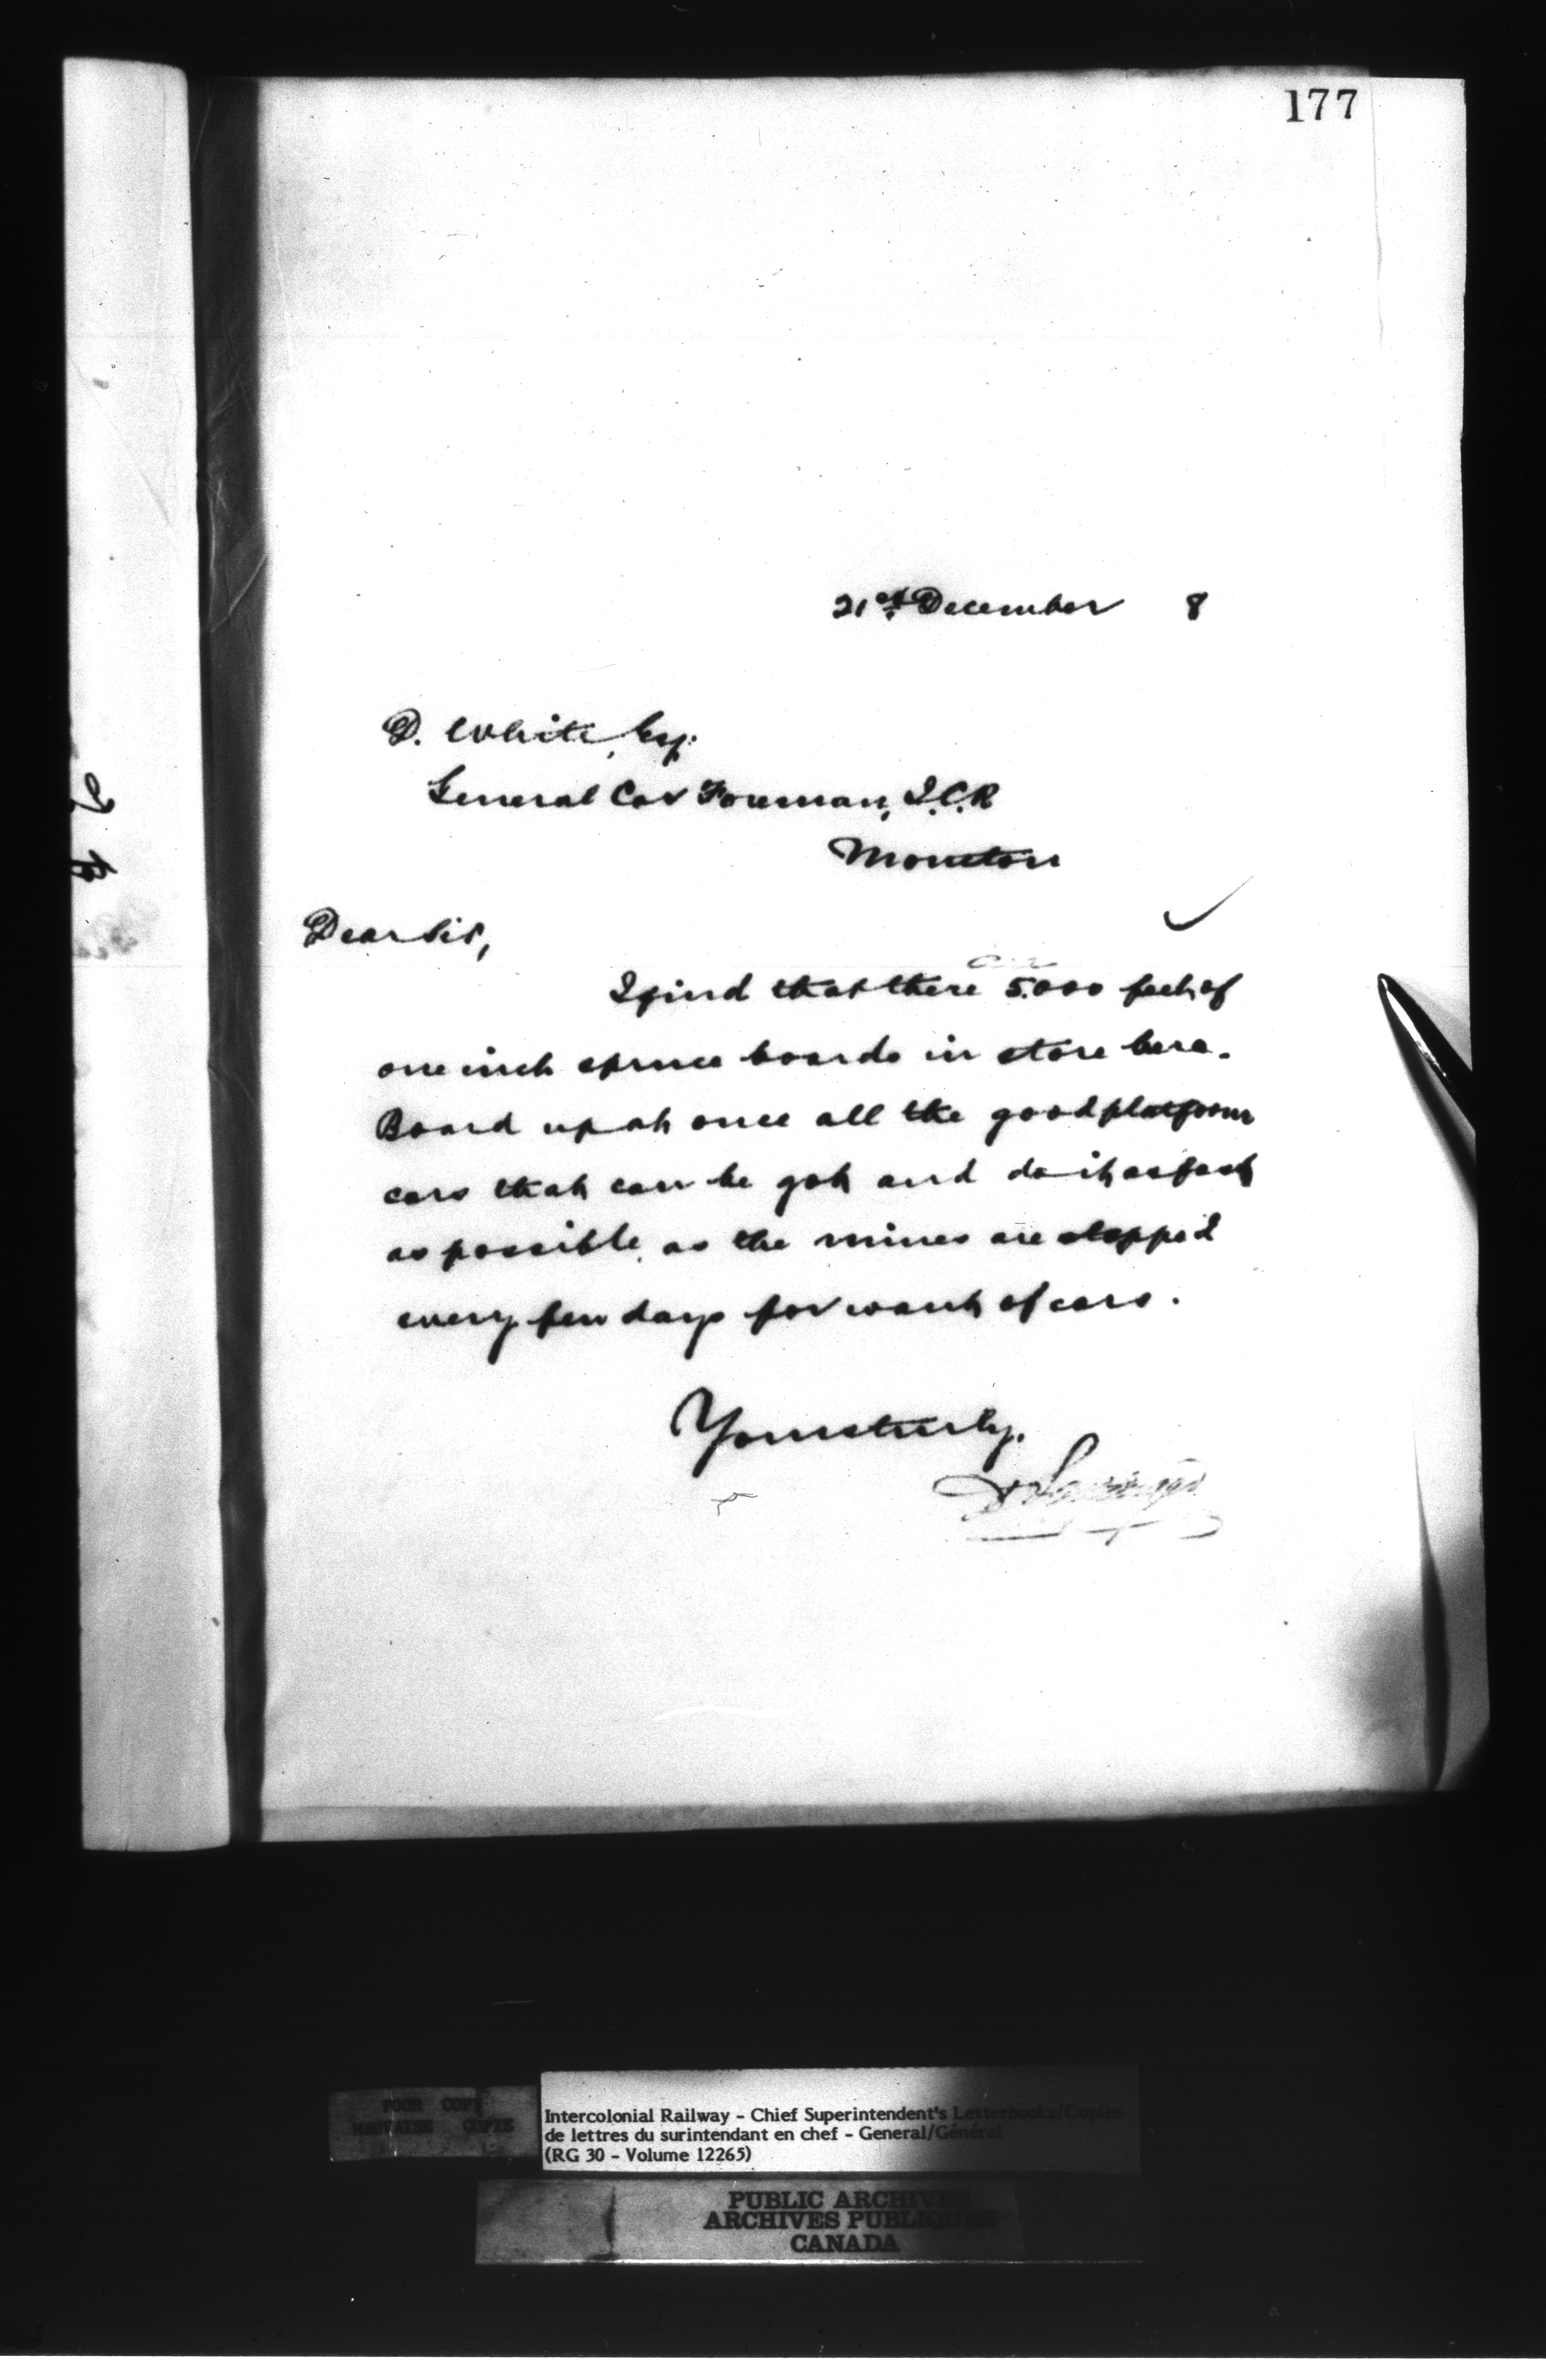 177
21st December 8
D. White, Esq.
General Car Foreman, I.C.R
Moncton
Dear Sir,
are
I find that there 5.000 feet of
one inch spruce boards in store here.
Board up at once all the good platform
cars that can be got and do it as fast
as possible, as the mines are stopped
every few days for want of cars.
Yours truly,
POOR COPY
MAUVAISE COPIE
Intercolonial Railway - Chief Superintendent's Letterbooks/Copies
de lettres du surintendant en chef - General/Général
(RG 30 - Volume 12265)
PUBLIC ARCHIVES
ARCHIVES PUBLIQUES
CANADA